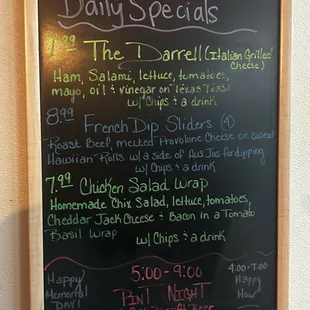 Daily Specials
7.99 The Darrell (Italian Grilled
Cheese)
Ham, Salami, lettuce, tomatoes,
mayo, oil & vinegar on Texas Toast
w/ Chips & a drink
8.99 French Dip Sliders (4)
Roast Beef, melted Provolone Cheese on sweet
Hawaiian Rolls w/ a side of Aus Jus for dipping
w/ Chips & a drink
7.99 Chicken Salad Wrap
Homemade Chix Salad, lettuce, tomatoes,
Cheddar Jack Cheese & Bacon in a Tomato
Basil Wrap
w/ Chips & a drink
Happy
Memorial
DAY!
5:00-9:00
PINT NIGHT
4:00-7:00
Happy
Hour